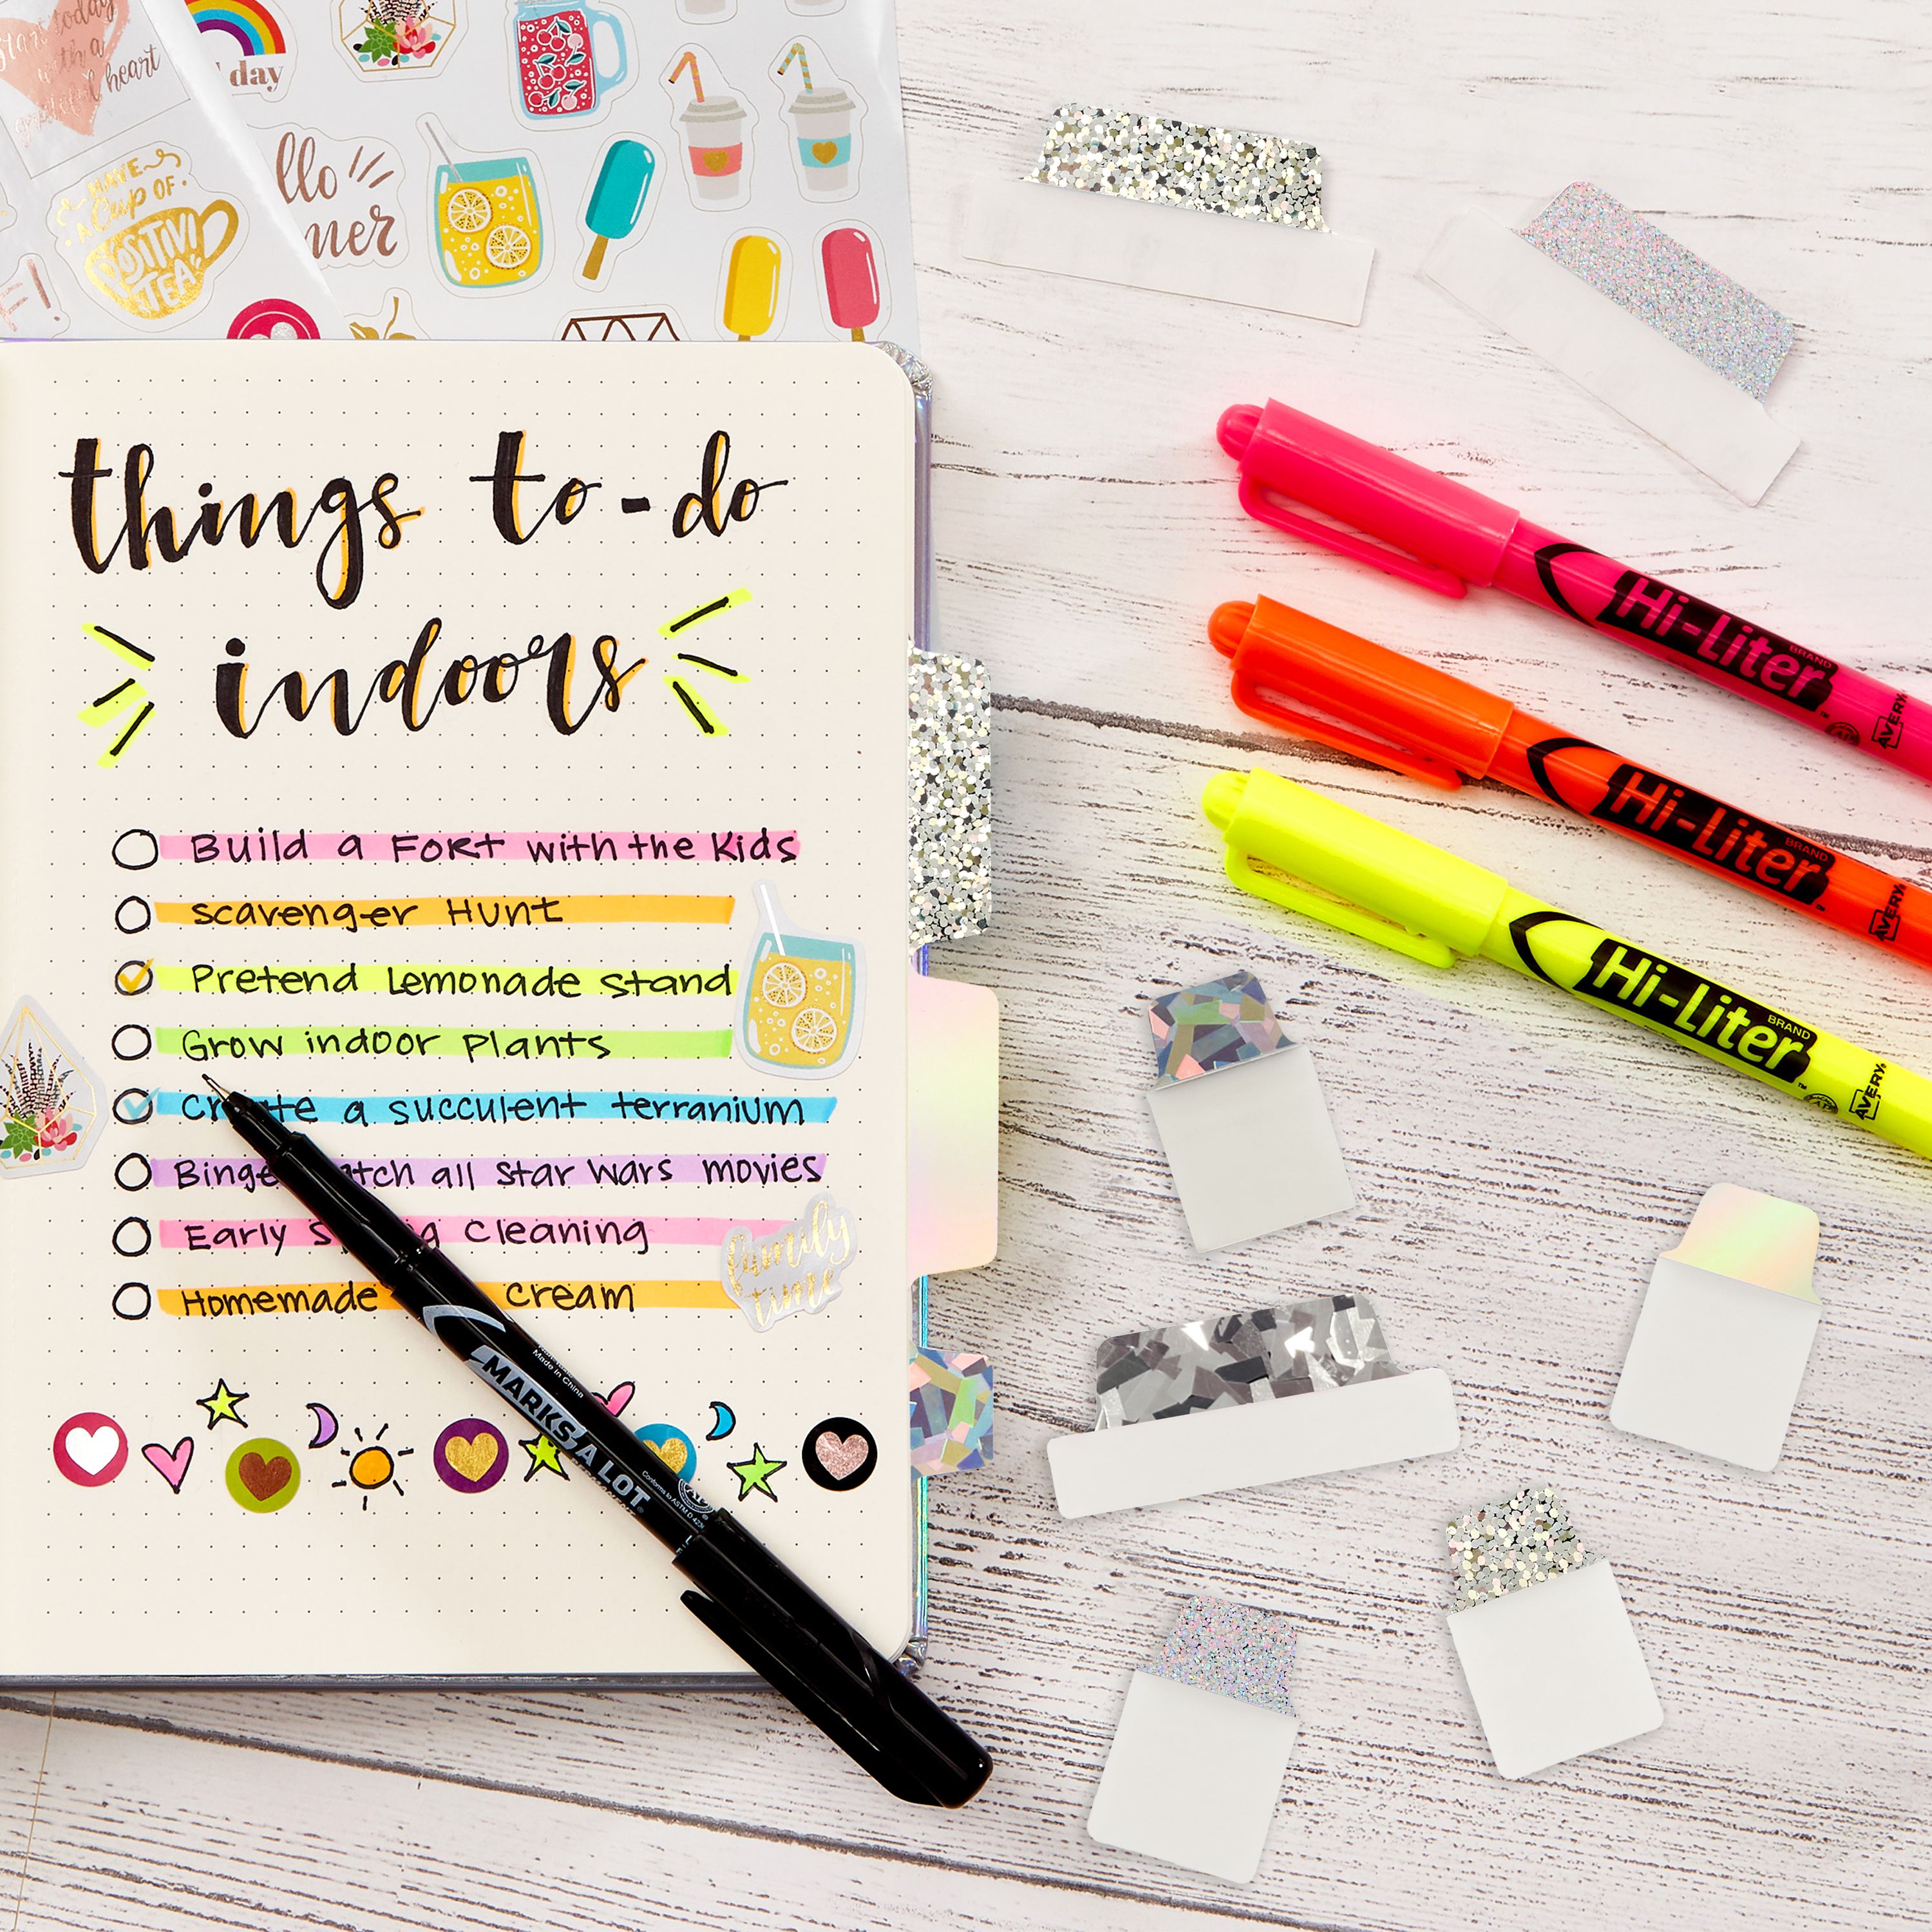 start today
with a
grateful heart
day
HAVE
A Cup OF
POSITIVI
TEA
llo
mer
F!
things to-do
indoors
Build a Fort with the Kids
Scavenger Hunt
Pretend Lemonade Stand
Grow indoor plants
Create a succulent terranium
Binge watch all Star Wars movies
Early Spring Cleaning
Homemade cream
family
time
Made in China
MARKS A LOT
Conforms to ASTM D 4236
Hi-Liter
BRAND
AVERY
Hi-Liter
BRAND
AVERY
Hi-Liter
BRAND
AVERY